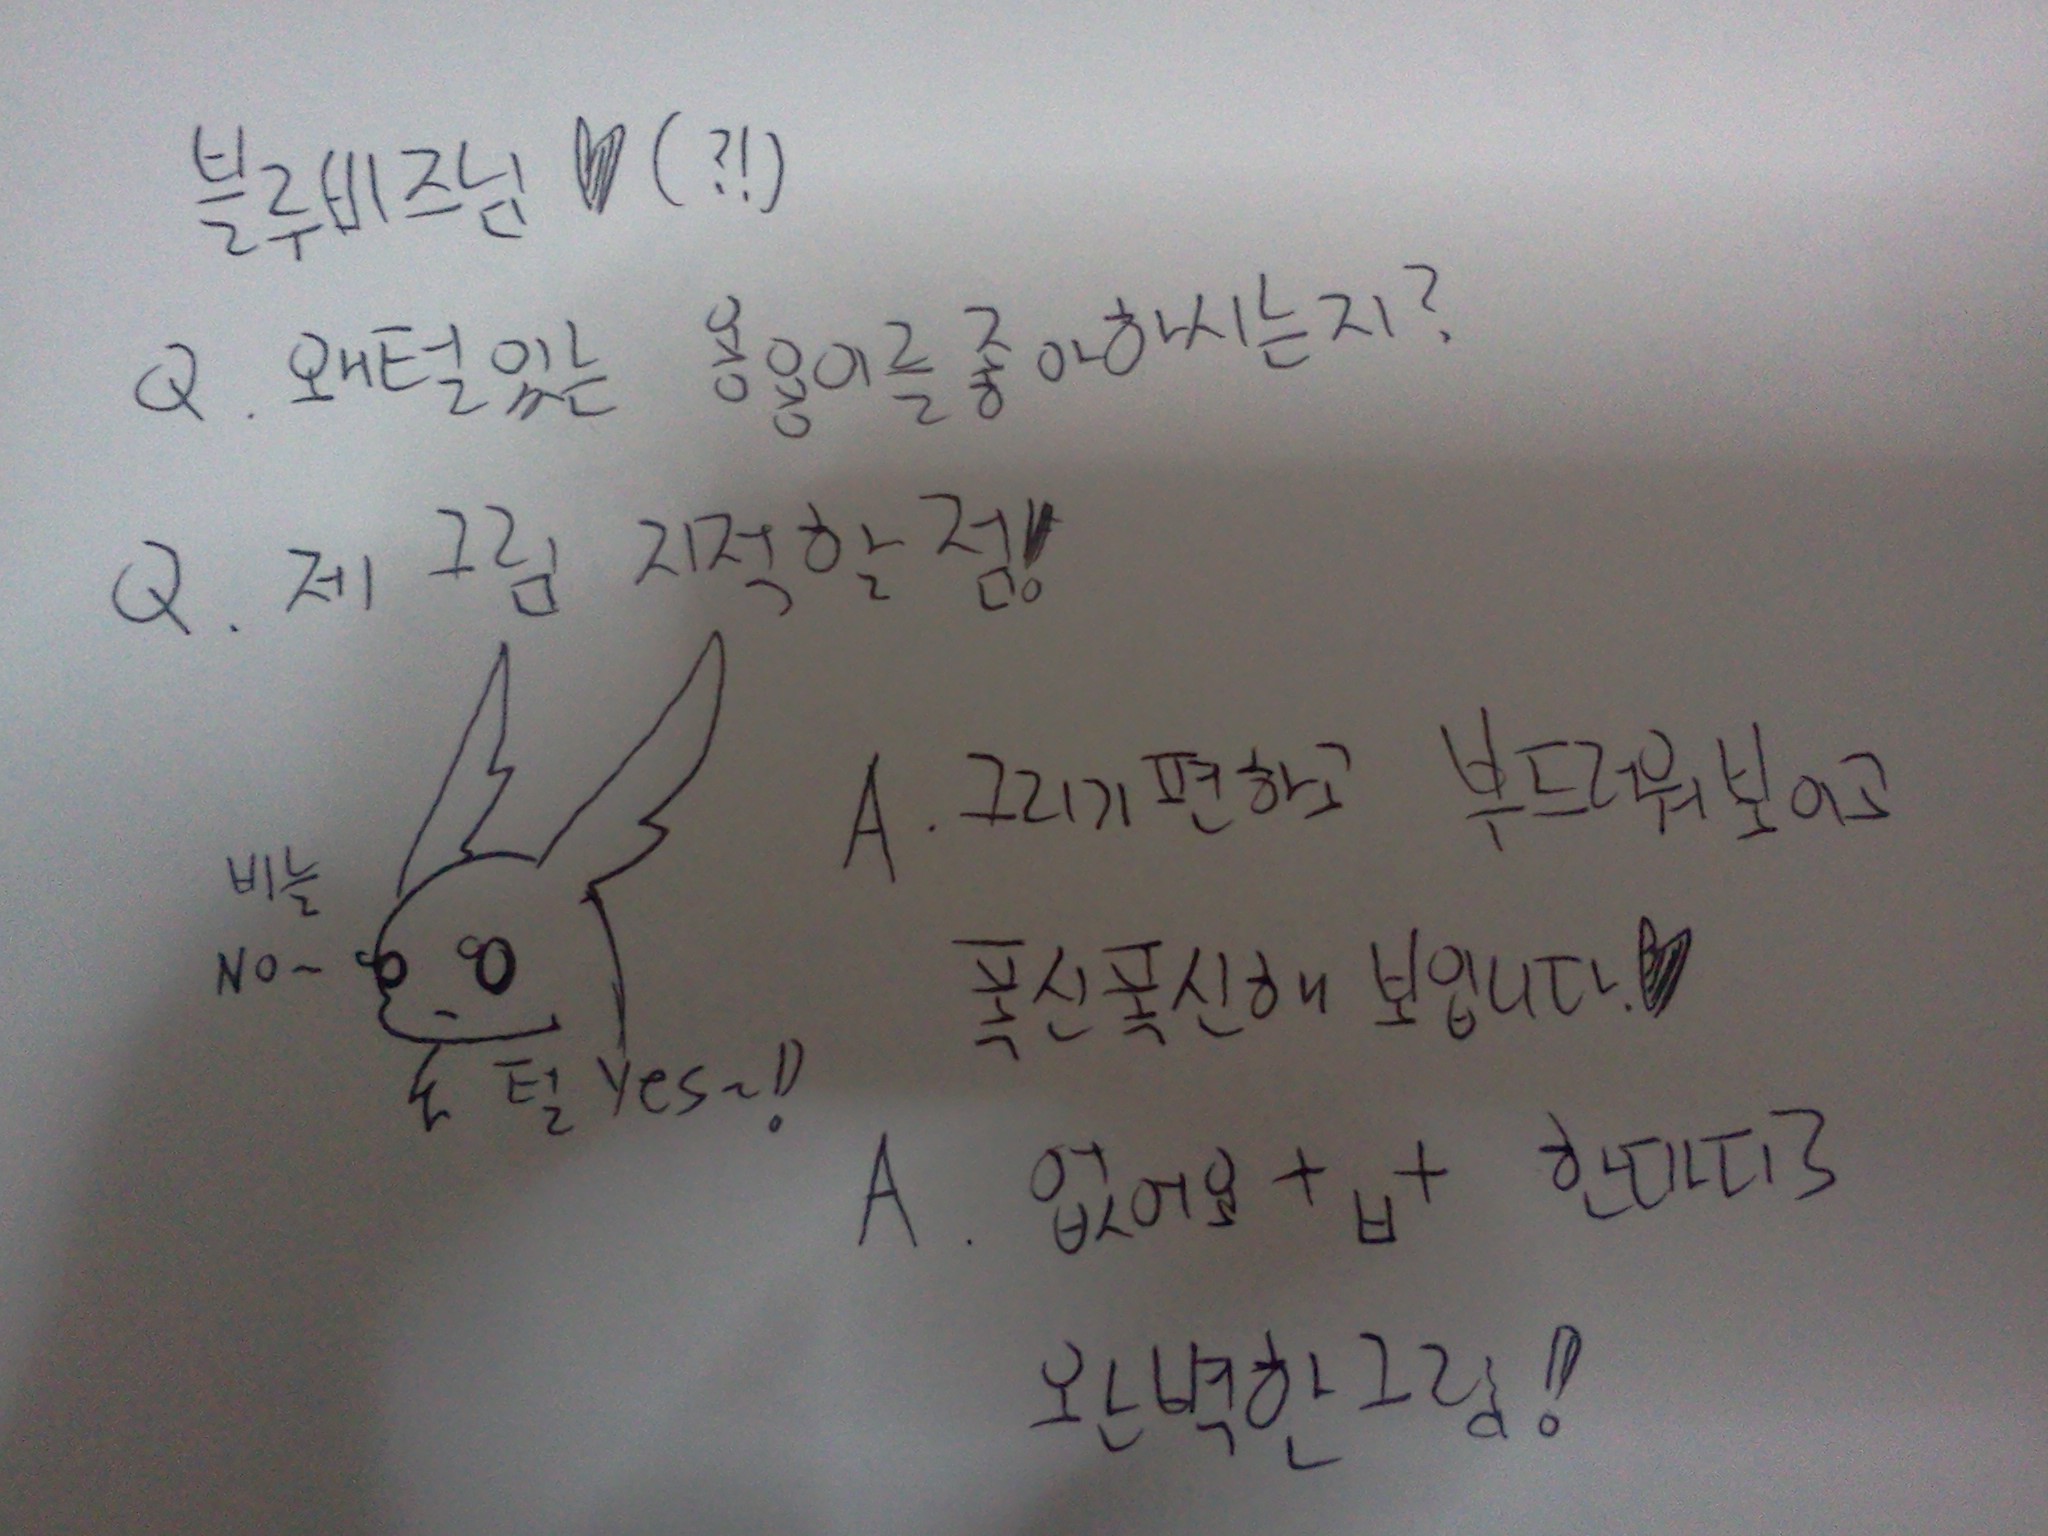 블루비즈님 ♥(?!)
Q. 왜털있는 용용이를좋아하시는지?
Q. 제 그림 지적할점!
A. 그리기편하고 부드러워보이고
폭신폭신해 보입니다.♥
비늘
NO~
털 yes~!
A. 없어요+ㅂ+
완벽한그림!